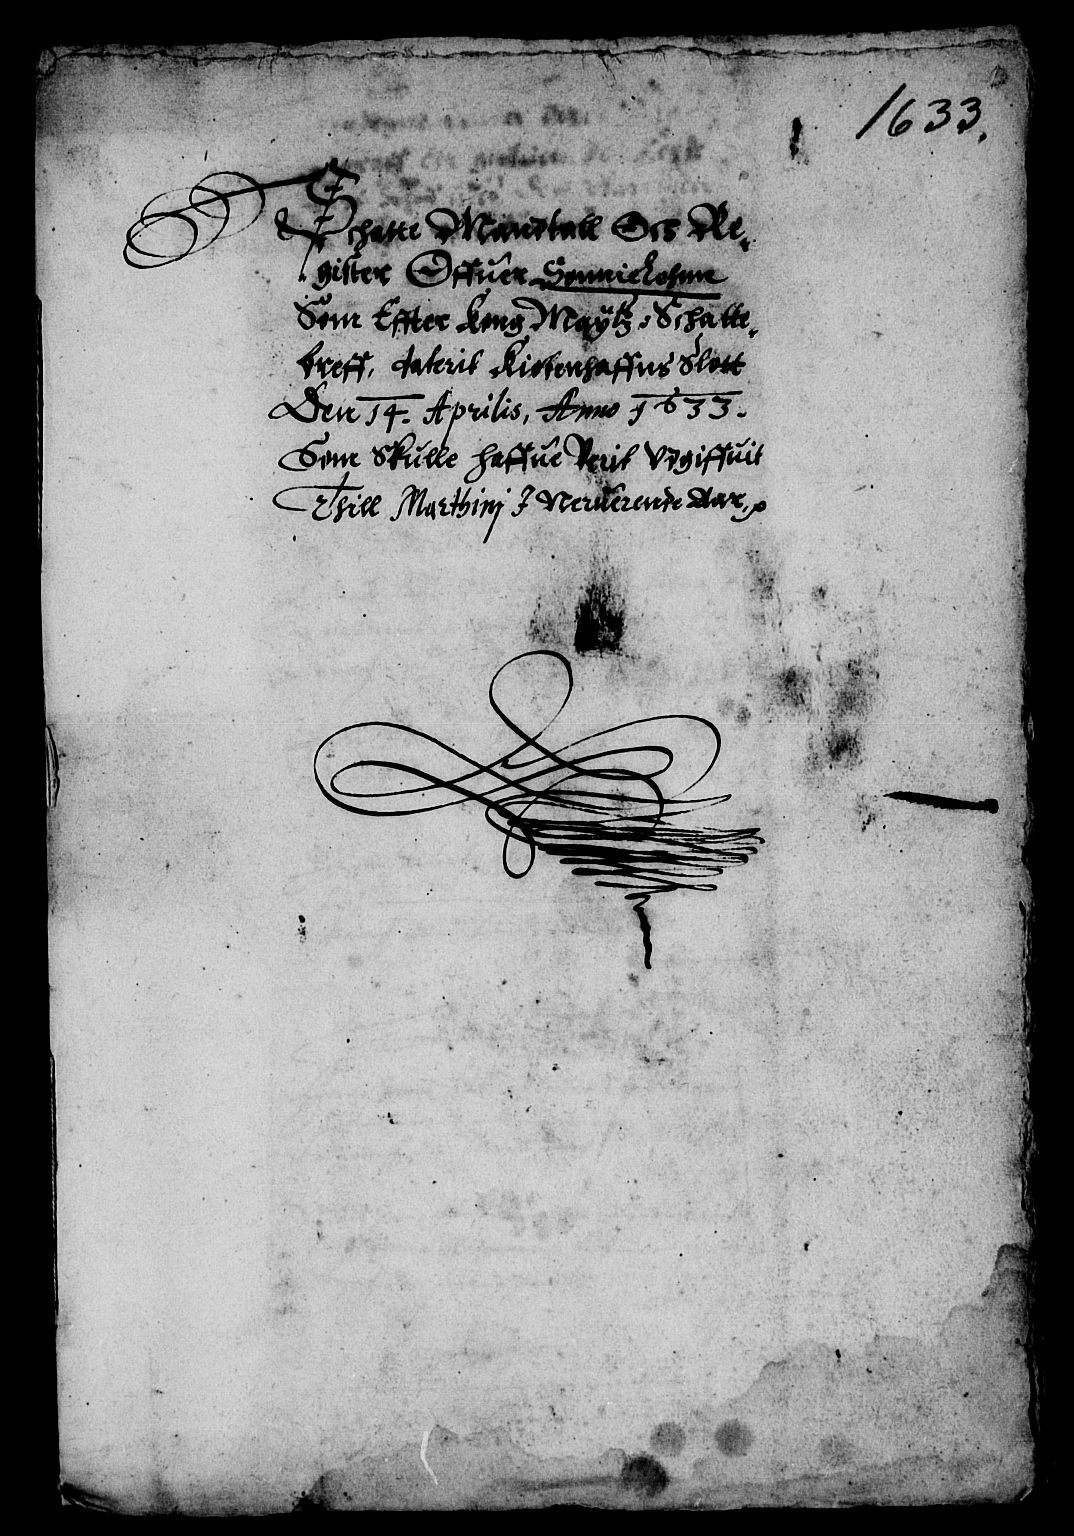 1633.
Schatte Mandtall Och Re-
gister Offuer Hønnickohue
Som Effter Kong Maytz Schatte-
breff, daterit Kiøbenhaffns Slott
Den 14. Aprilis, Anno 1633.
Som Skulle haffue Verit Vdgiffuit
Thill Marthinj I Neruerende Aar,